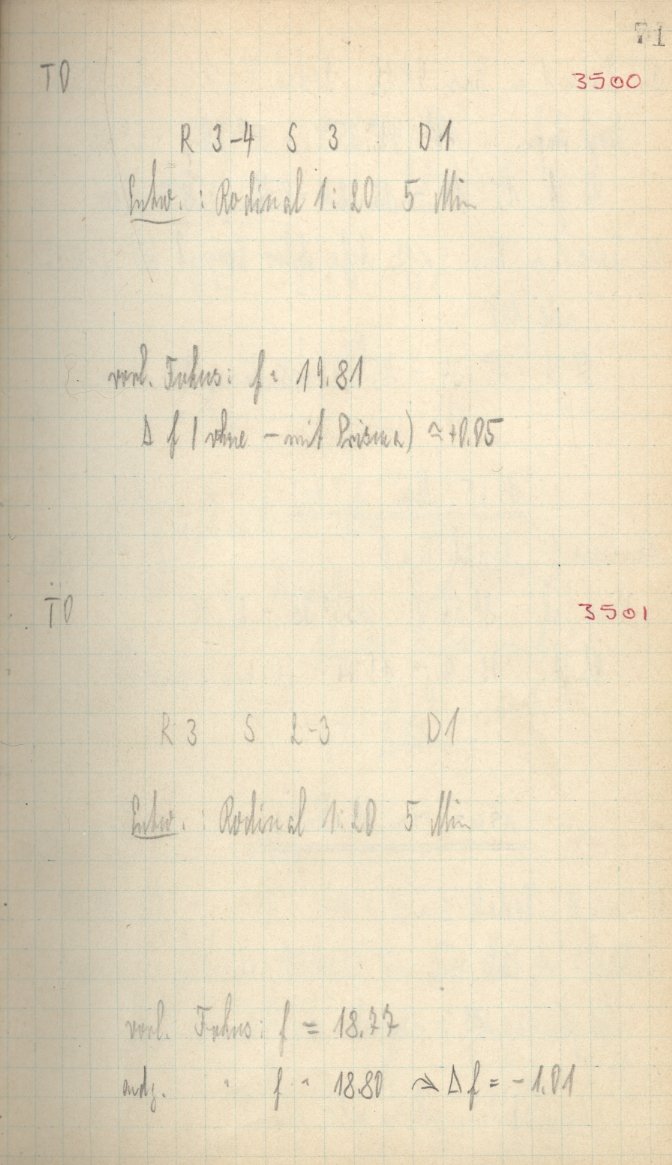 71
TD 3500
R 3-4 S 3 D1
Entw.: Rodinal 1:20 5 Min
vorl. Fokus: f = 19.81
Δ f (ohne - mit Prisma) ≈ +0.05
TD 3501
R 3 S 2-3 D1
Entw.: Rodinal 1:20 5 Min
vorl. Fokus: f = 18.77
endg. " f = 18.80 ⇒ Δ f = -1.01